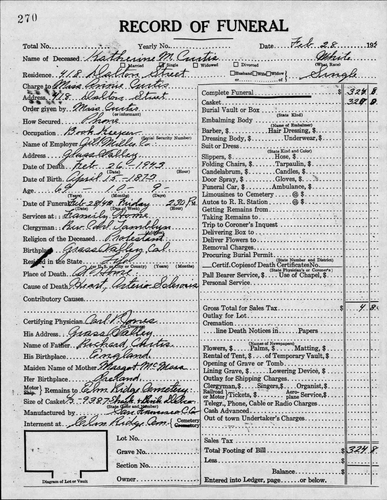 270
RECORD OF FUNERAL
Total No. Yearly No. Date Feb 28 193
Name of Deceased Katherine M. Curtis White
Married Single Widowed Divorced (What Race)
Residence 418 Dalton Street Husband Wife Son Single
Charge to Miss Curtis
Address 418 Dalton Street
Order given by Miss Curtis
How Secured None
Occupation Book Keeper
(Social Security Number)
Name of Employer
Address Grass Valley
Date of Death Feb. 26 1942
Date of Birth April 1879
Age
Date of Funeral Feb 28 42 Friday 2:30 P.
Services at Family Home
Clergyman Rev. Carl Tamblyn
Religion of the Deceased Protestant
Birthplace Grass Valley, Cal.
Resided in the State Life
Place of Death At Home
Cause of Death Heart,
Contributory Causes
Certifying Physician Carl P. Jones
His Address Grass Valley
Name of Father Richard Curtis
His Birthplace England
Maiden Name of Mother Margaret
Her Birthplace Ireland
Motor Ship Remains to Elm Ridge Cemetery
Size of Casket
Manufactured by
Interment at Elm Ridge Cem. Cemetery Crematory
Lot No.
Grave No.
Section No.
Owner
Diagram of Lot or Vault
Complete Funeral $ 324 8
Casket 320 0
Burial Vault or Box
(State Kind)
Embalming Body
(State Kind)
Barber, $ Hair Dressing, $
Dressing Body, $ Underwear, $
Suit or Dress
(State Kind and Color)
Slippers, $ Hose, $
Folding Chairs, $ Tarpaulin, $
Candelabrum, $ Candles, $
Door Spray, $ Gloves, $
Funeral Car, $ Ambulance, $
Limousines to Cemetery @ $
Autos to R. R. Station @ $
Getting Remains from
Taking Remains to
Trip to Coroner's Inquest
Delivering Box to
Deliver Flowers to
Removal Charges
Procuring Burial Permit
Certif. Copies of Death Certificates No.
(State Physician's or Coroner's)
Pall Bearer Service, $ Use of Chapel, $
Personal Service
Gross Total for Sales Tax $ 4 8
Outlay for Lot
Cremation
line Death Notices in Papers
(Names of Newspapers)
Flowers, $ Palms, $ Matting, $
Rental of Tent, $ of Temporary Vault, $
Opening of Grave or Tomb
Lining Grave, $ Lowering Device, $
Outlay for Shipping Charges
Clergyman, $ Singers, $ Organist, $
Tickets, $ Aero plane Service, $
Telegr., Phone, Cable or Radio Charges
Cash Advanced
Out of town Undertaker's Charges
Sales Tax
Total Footing of Bill $ 324 8
Less
Balance
Entered into Ledger, page or below